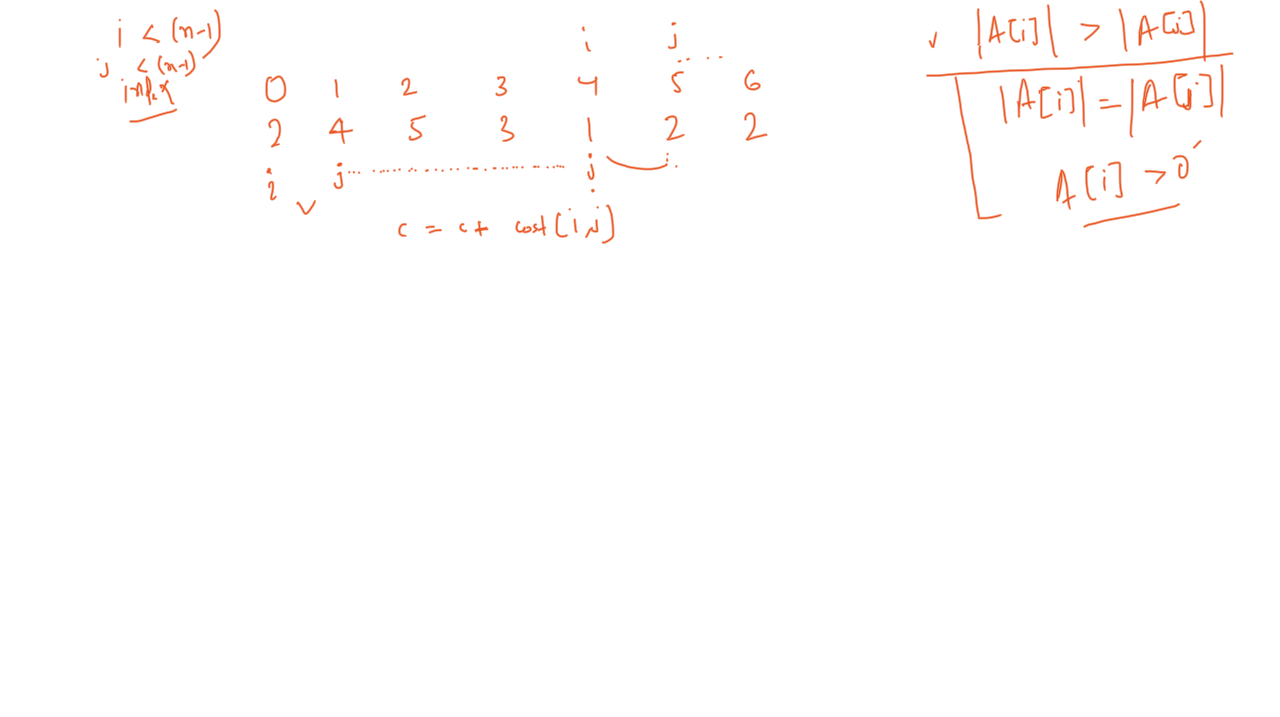 i < (n-1)
j < (n-1)
index
i j
0 1 2 3 4 5 6
2 4 5 3 1 2 2
i j j
c = c + cost(i, j)
|A[i]| > |A[j]|
|A[i]| = |A[j]|
A[i] > 0